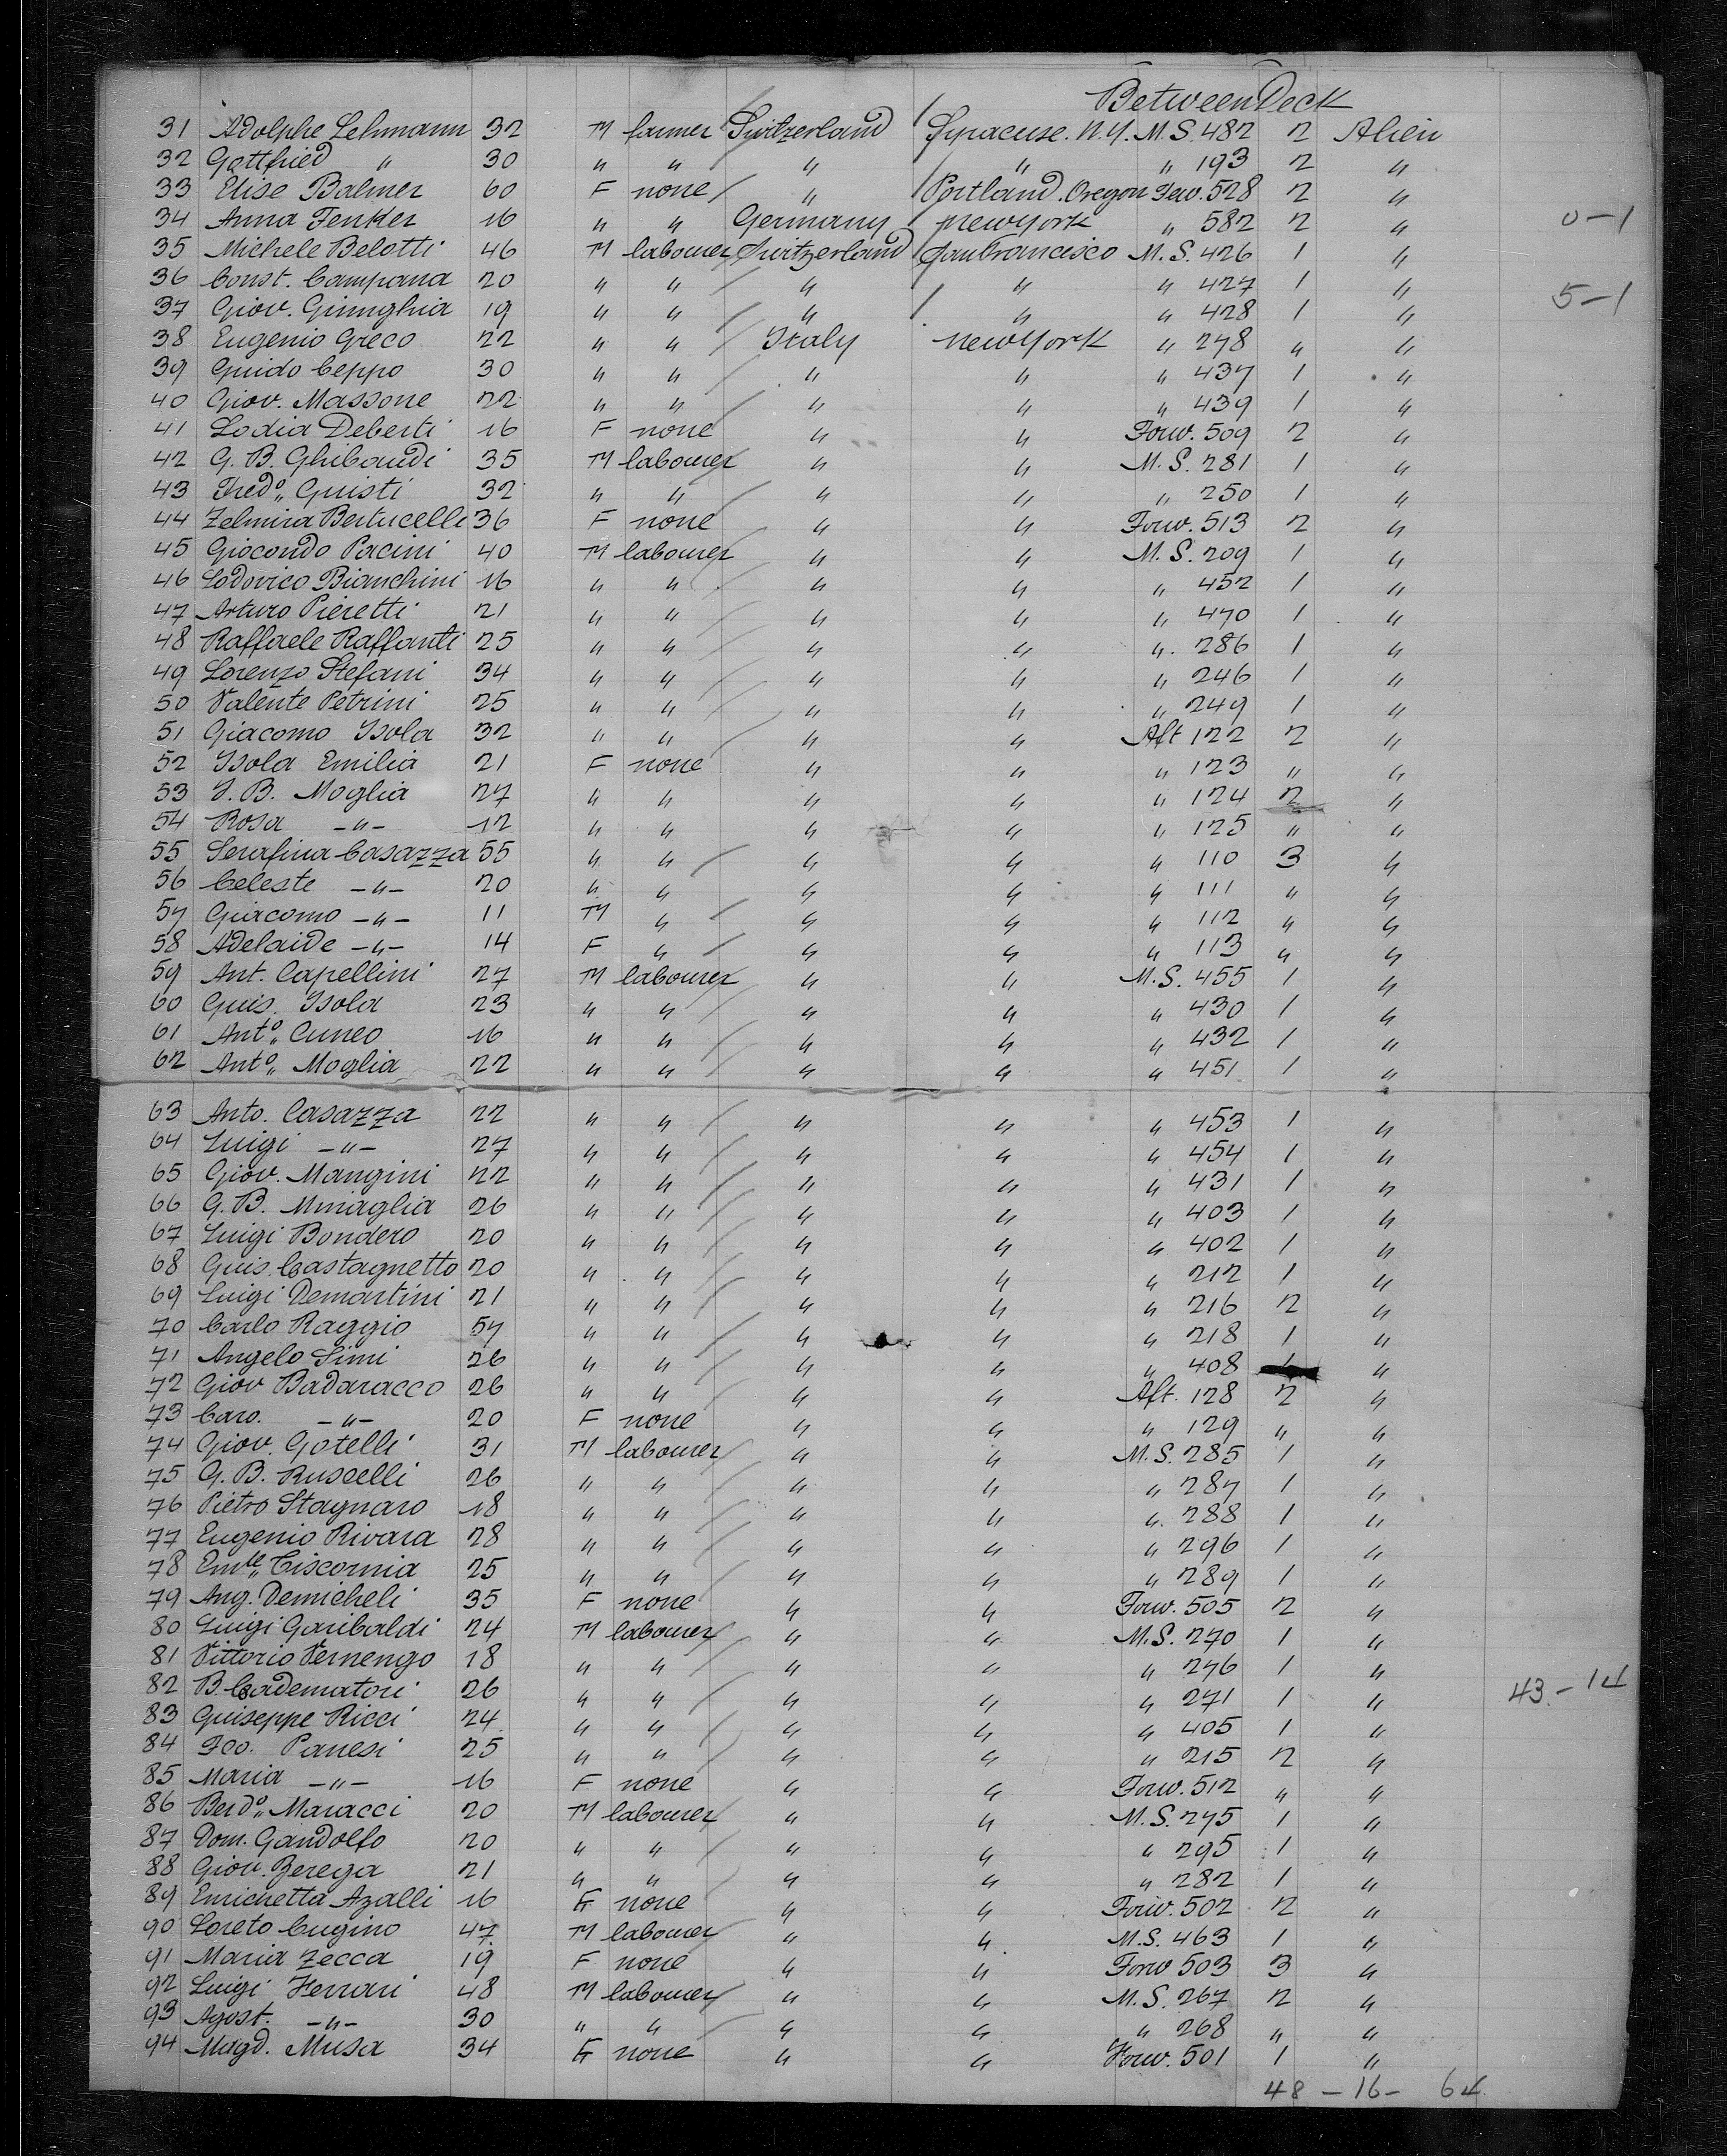 Between Deck
31 Adolphe Lehmann 32 M farmer Switzerland Syracuse. N.Y. M.S. 482 2 Alien
32 Gottfried " 30 " " " " " 193 2 "
33 Elise Balmer 60 F none " Portland. Oregon Forw. 528 2 "
34 Anna Fenkter 16 " " Germany New York " 582 2 " 0-1
35 Michele Belotti 46 M labourer Switzerland San Francisco M.S. 426 1 "
36 Const. Campana 20 " " " " " 427 1 " 5-1
37 Giov. Ginnghia 19 " " " " " 428 1 "
38 Eugenio Greco 22 " " Italy New York " 278 " "
39 Guido Ceppo 30 " " " " " 437 1 "
40 Giov. Massone 22 " " " " " 439 1 "
41 Lodia Deberti 16 F none " " Forw. 509 2 "
42 G. B. Ghibaudi 35 M labourer " " M.S. 281 1 "
43 Fredo. Guisti 32 " " " " " 250 1 "
44 Zelmira Bertucelli 36 F none " " Forw. 513 2 "
45 Giocondo Pacini 40 M labourer " " M.S. 209 1 "
46 Lodovico Bianchini 16 " " " " " 452 1 "
47 Arturo Pieretti 21 " " " " " 470 1 "
48 Raffaele Raffanti 25 " " " " " 286 1 "
49 Lorenzo Stefani 34 " " " " " 246 1 "
50 Valente Petrini 25 " " " " " 249 1 "
51 Giacomo Isola 32 " " " " Aft 122 2 "
52 Isola Emilia 21 F none " " " 123 " "
53 J. B. Moglia 27 " " " " " 124 2 "
54 Rosa -"- 12 " " " " " 125 " "
55 Serafina Casazza 55 " " " " " 110 3 "
56 Celeste -"- 20 " " " " " 111 " "
57 Giacomo -"- 11 M " " " " 112 " "
58 Adelaide -"- 14 F " " " " 113 " "
59 Ant. Capellini 27 M labourer " " M.S. 455 1 "
60 Guis. Isola 23 " " " " " 430 1 "
61 Anto. Cuneo 16 " " " " " 432 1 "
62 Anto. Moglia 22 " " " " " 451 1 "
63 Anto. Casazza 22 " " " " " 453 1 "
64 Luigi -"- 27 " " " " " 454 1 "
65 Giov. Mangini 22 " " " " " 431 1 "
66 G. B. Mmaglia 26 " " " " " 403 1 "
67 Luigi Bondero 20 " " " " " 402 1 "
68 Guis. Castagnetto 20 " " " " " 212 1 "
69 Luigi Demartini 21 " " " " " 216 2 "
70 Carlo Raggio 57 " " " " " 218 1 "
71 Angelo Simi 26 " " " " " 408 "
72 Giov Badaracco 26 " " " " Aft. 128 2 "
73 Caro. -"- 20 F none " " " 129 " "
74 Giov. Gotelli 31 M labourer " " M.S. 285 1 "
75 G. B. Ruscelli 26 " " " " " 287 1 "
76 Pietro Stagnaro 18 " " " " " 288 1 "
77 Eugenio Rivara 28 " " " " " 296 1 "
78 Emle. Ciscornia 25 " " " " " 289 1 "
79 Ang. Demicheli 35 F none " " Forw. 505 2 "
80 Luigi Garibaldi 24 M labourer " " M.S. 270 1 "
81 Vittorio Vernengo 18 " " " " " 276 1 "
82 B. Cadematori 26 " " " " " 271 1 " 43-14
83 Guiseppe Ricci 24 " " " " " 405 1 "
84 Fco. Panesi 25 " " " " " 215 2 "
85 Maria -"- 16 F none " " Forw. 512 " "
86 Berdo. Maracci 20 M labourer " " M.S. 275 1 "
87 Dom. Gandolfo 20 " " " " " 295 1 "
88 Giov. Zerega 21 " " " " " 282 1 "
89 Enrichetta Azalli 16 F none " " Forw. 502 2 "
90 Loreto Cugino 47 M labourer " " M.S. 463 1 "
91 Maria Zecca 19 F none " " Forw 503 3 "
92 Luigi Ferrari 48 M labourer " " M.S. 267 2 "
93 Agost. -"- 30 " " " " " 268 " "
94 Magd. Musa 34 F none " " Forw. 501 1 "
48 - 16 - 64